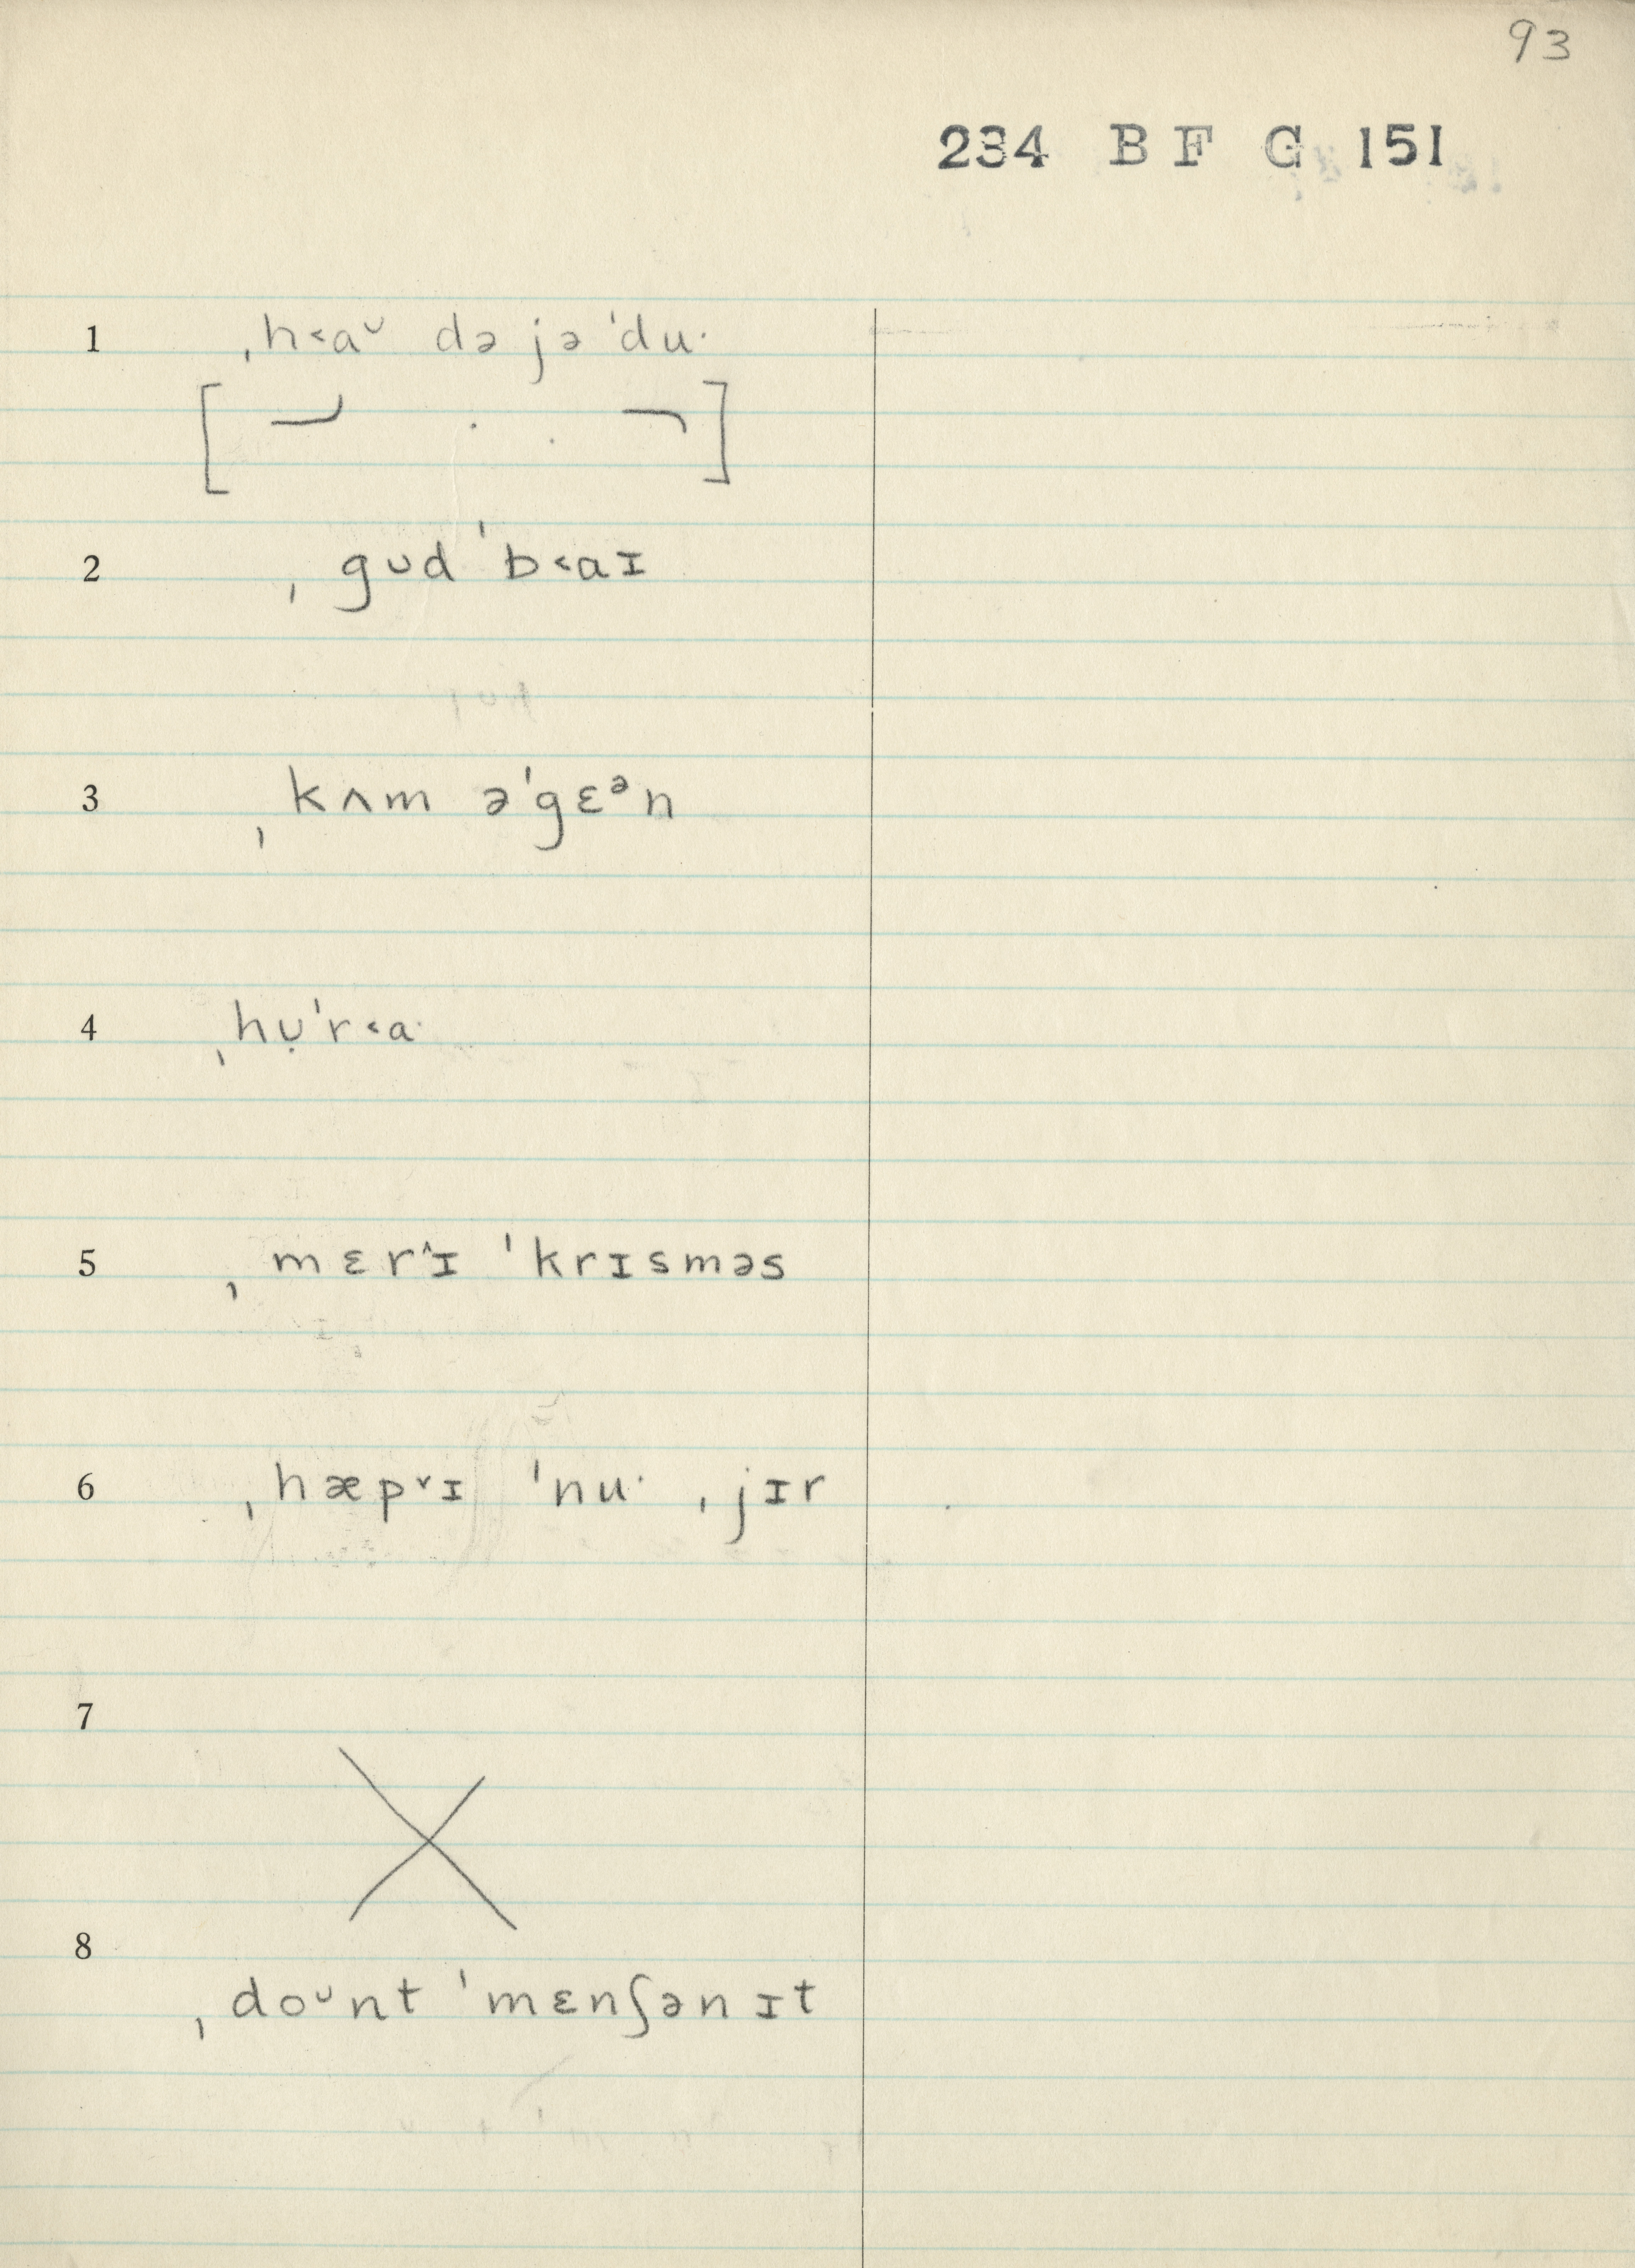 93
234 B F G 151
1 ˌh˂aᴗ də jə ˈdu·
2 ˌgᴜd ˈb˂aɪ
3 ˌkʌm əˈgɛᵊn
4 ˌhᴜ̣ˈr˂a·
5 ˌmɛr˄ɪ ˈkrɪsməs
6 ˌhæp˅ɪ ˈnu· ˌjɪr
7
8
ˌdoᶷnt ˈmɛnʃən ɪt